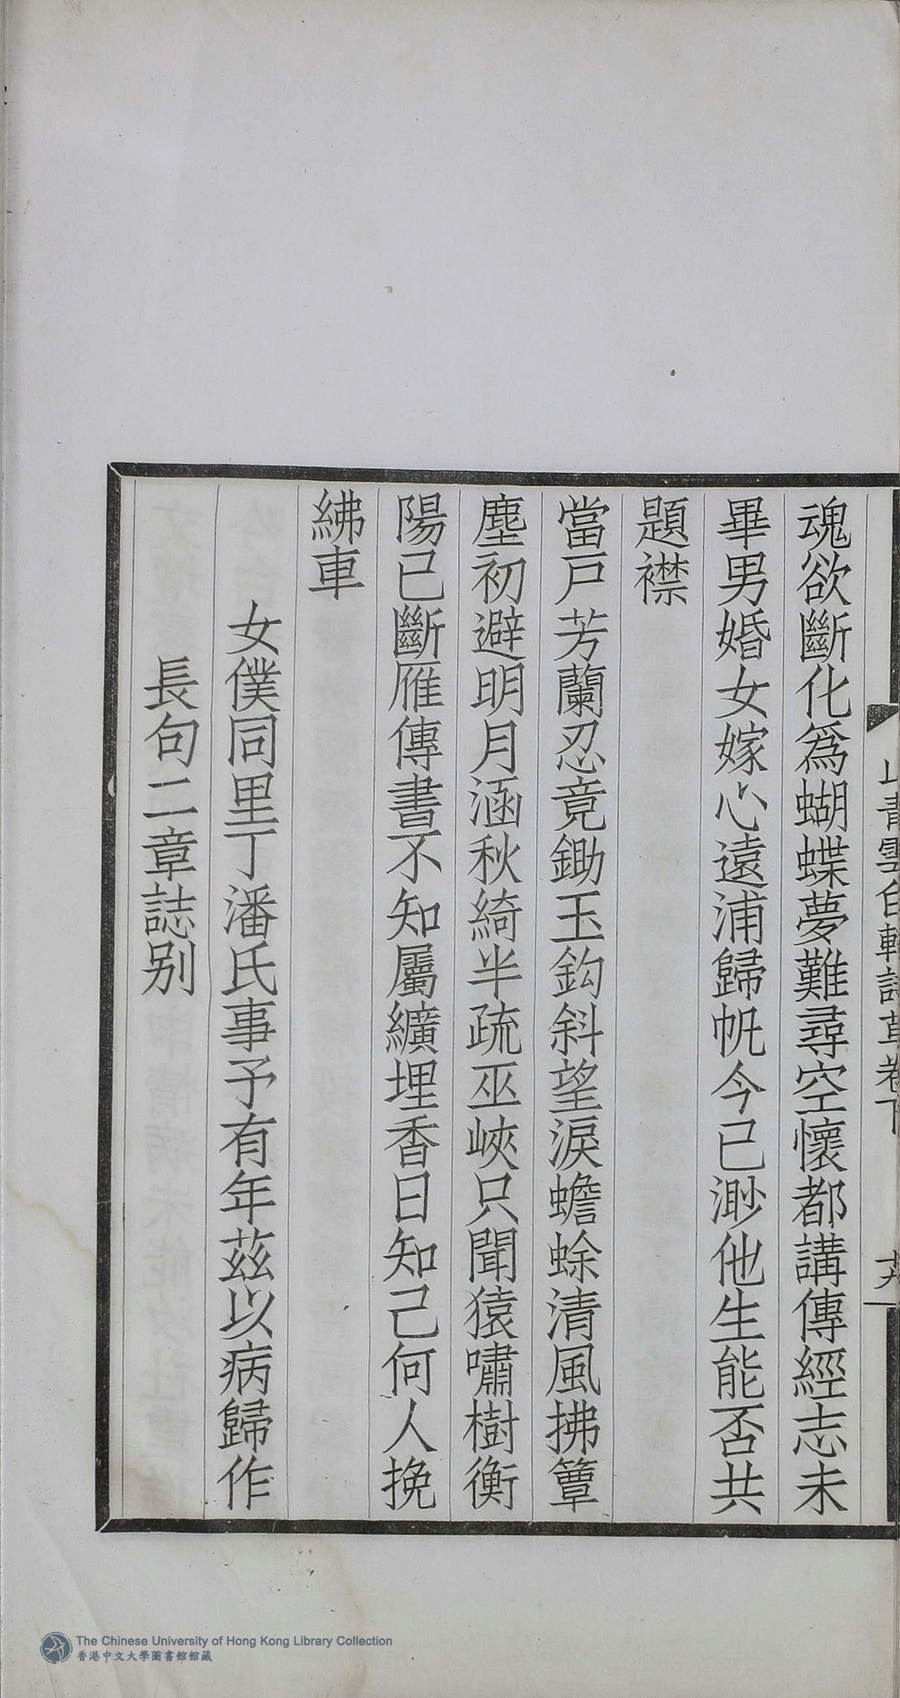 山青雲白軒詩草卷下
十六
魂欲斷化爲蝴蝶夢難尋空懷都講傳經志未
畢男婚女嫁心遠浦歸帆今已渺他生能否共
題襟
當戸芳蘭忍竟鋤玉鈎斜望淚蟾蜍清風拂簟
塵初避明月涵秋綺半疏巫峽只聞猿嘯樹衡
陽已斷雁傳書不知屬纊埋香日知己何人挽
紼車
女僕同里丁潘氏事予有年茲以病歸作
長句二章誌别
The Chinese University of Hong Kong Library Collection
香港中文大學圖書館館藏